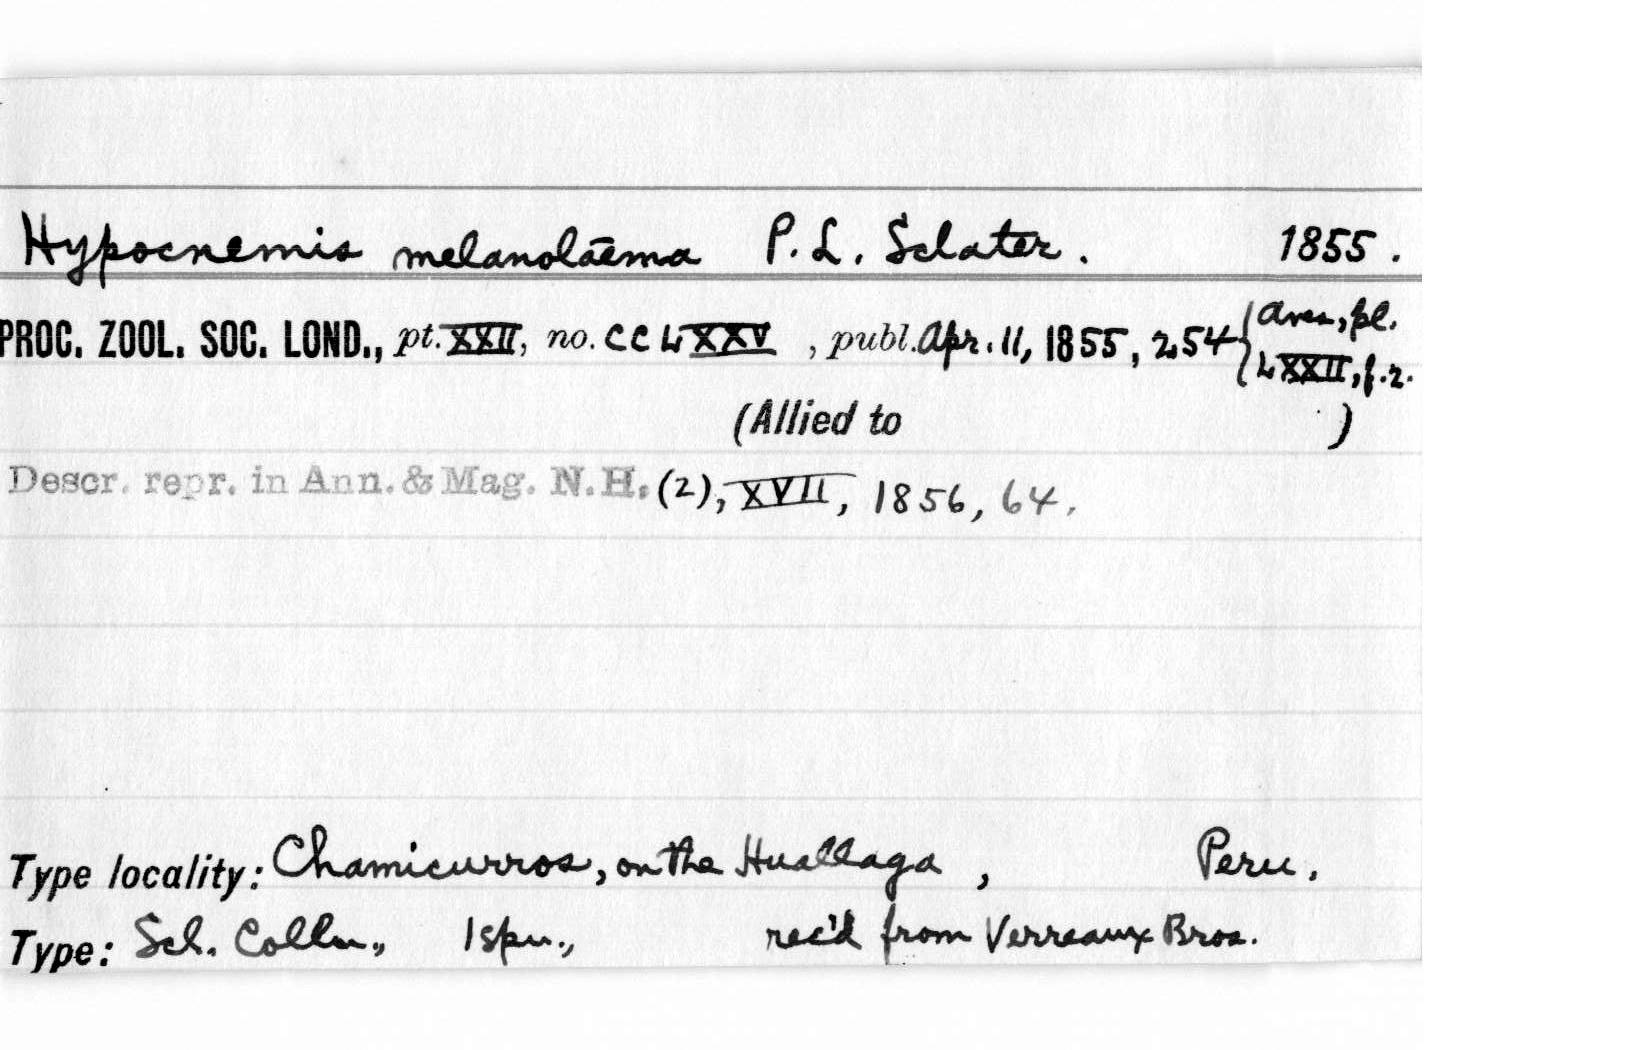 Hypocnemis melanolāema P. L. Sclater. 1855.
PROC. ZOOL. SOC. LOND., pt. XXII, no. CCLXXV, publ. Apr. 11, 1855, 254 { Aves, pl.
LXXII, f. 2.
(Allied to )
Descr. repr. in Ann. & Mag. N. H. (2), XVII, 1856, 64.
Type locality: Chamicurros, on the Huallaga, Peru.
Type: Scl. Colln., 1 spn., rec'd from Verreaux Bros.